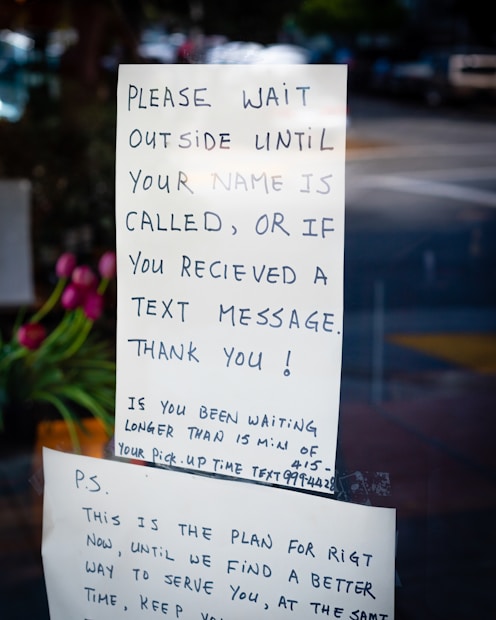 PLEASE WAIT
OUTSIDE UNTIL
YOUR NAME IS
CALLED, OR IF
YOU RECIEVED A
TEXT MESSAGE.
THANK YOU!
IS YOU BEEN WAITING
LONGER THAN 15 MIN OF
YOUR PICK-UP TIME TEXT 415-
999-4428
P.S.
THIS IS THE PLAN FOR RIGT
NOW, UNTIL WE FIND A BETTER
WAY TO SERVE YOU, AT THE SAMT
TIME, KEEP